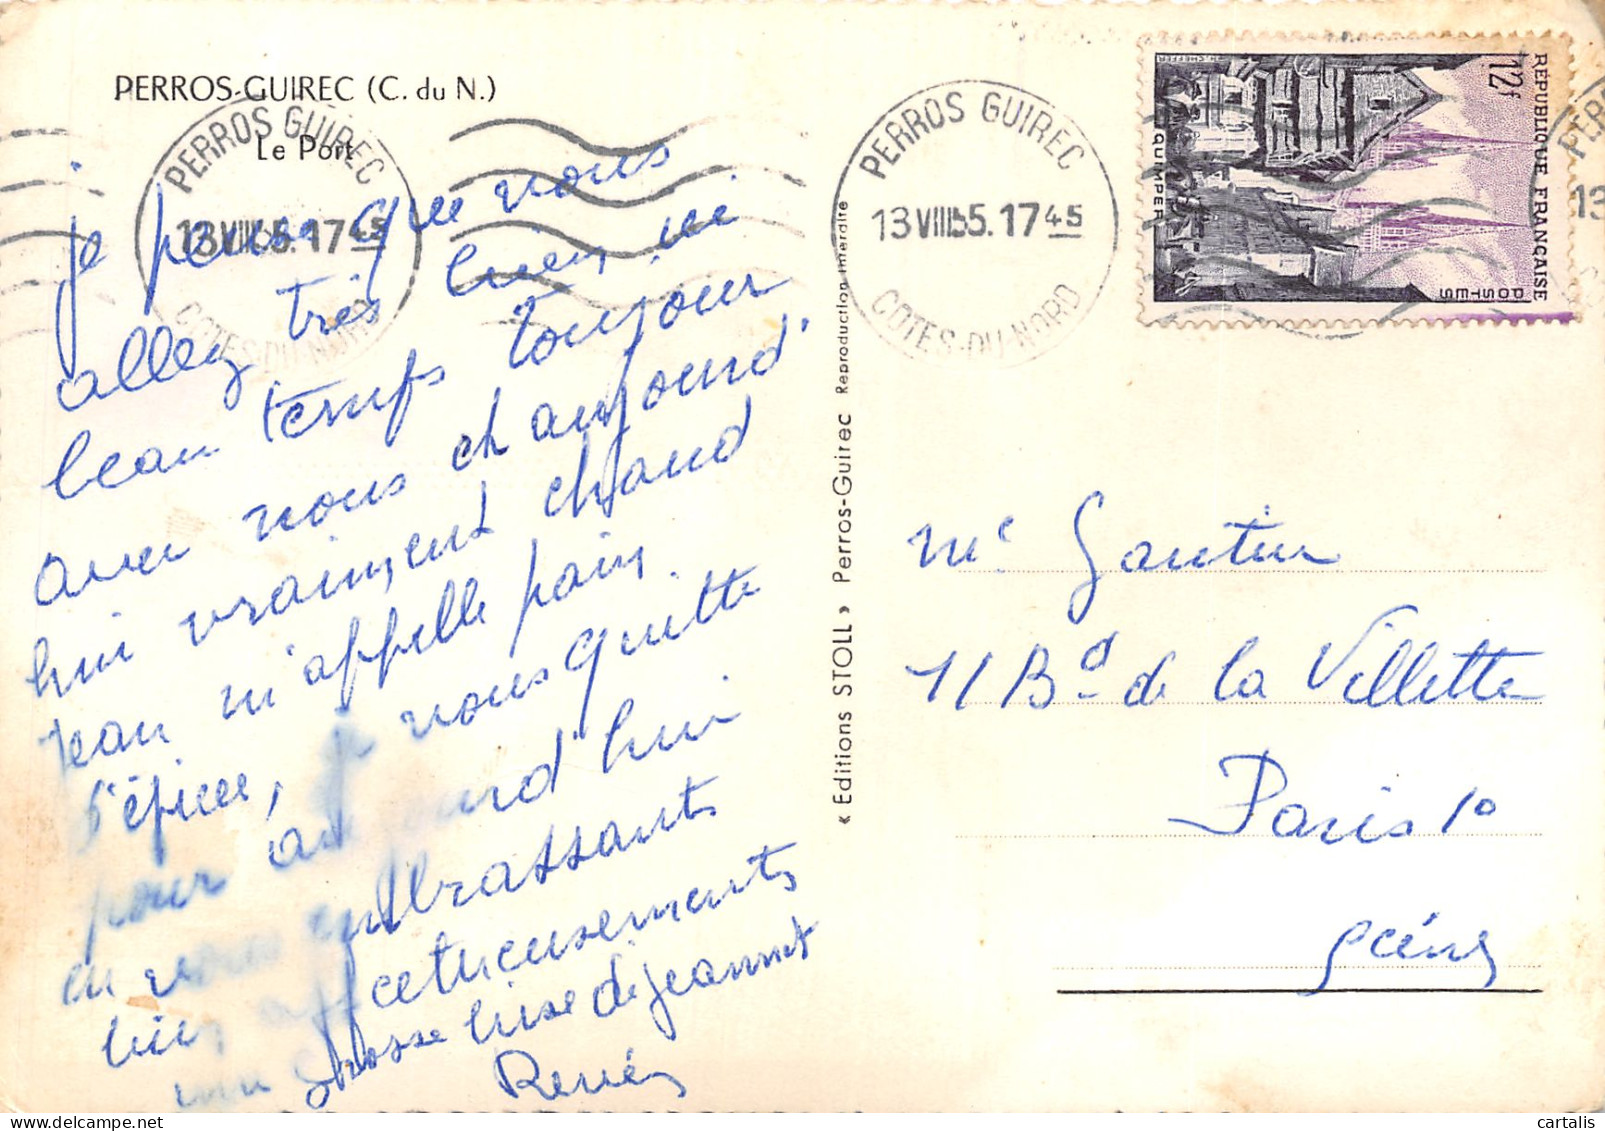 PERROS-GUIREC (C. du N.)
Le Port
PERROS GUIREC
13 VIII 55. 17 45
COTES-DU-NORD
je pense que vous
allez très bien, ici
beau temps toujour
avec nous et aujourd'
hui vraiment chaud
Jean m'appelle pain
d'épice, je vous quitte
pour aujourd'hui
en vous embrassants
bien affectueusements
une grosse bise de jeannot
Renée
« Editions STOLL » Perros-Guirec Reproduction interdite
PERROS GUIREC
13 VIII 55. 17 45
COTES-DU-NORD
RÉPUBLIQUE FRANÇAISE
POSTES
12f
QUIMPER
PERR
13
Me Gautier
11 Bd de la Villette
Paris 10
Seine
cartalis